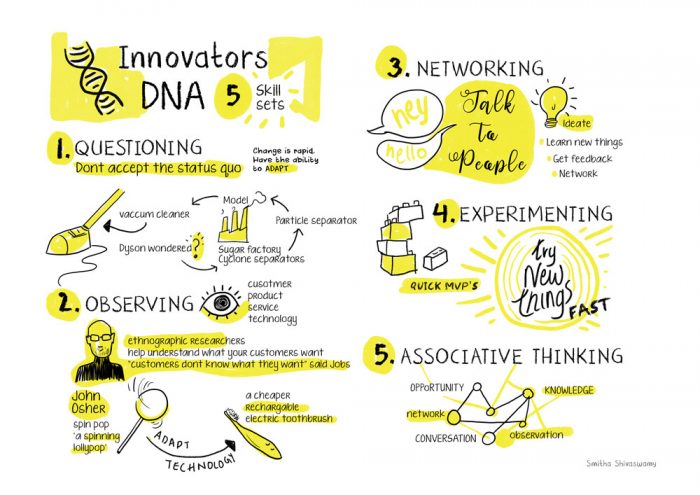 Innovators
DNA 5 Skill
sets
1. QUESTIONING
Dont accept the status quo
Change is rapid.
Have the ability
to ADAPT
Model
vaccum cleaner
Particle separator
Dyson wondered ?
Sugar factory
Cyclone separators
2. OBSERVING
cusotmer
product
service
technology
ethnographic researchers
help understand what your customers want
"customers dont know what they want" said Jobs
John
Osher
spin pop
'a spinning
lollypop'
ADAPT
TECHNOLOGY
a cheaper
rechargable
electric toothbrush
3. NETWORKING
hey
hello
Talk
to
People
Ideate
Learn new things
Get feedback
Network
4. EXPERIMENTING
QUICK MVP'S
try
New
things
FAST
5. ASSOCIATIVE THINKING
OPPORTUNITY
KNOWLEDGE
network
CONVERSATION
observation
Smitha Shivaswamy